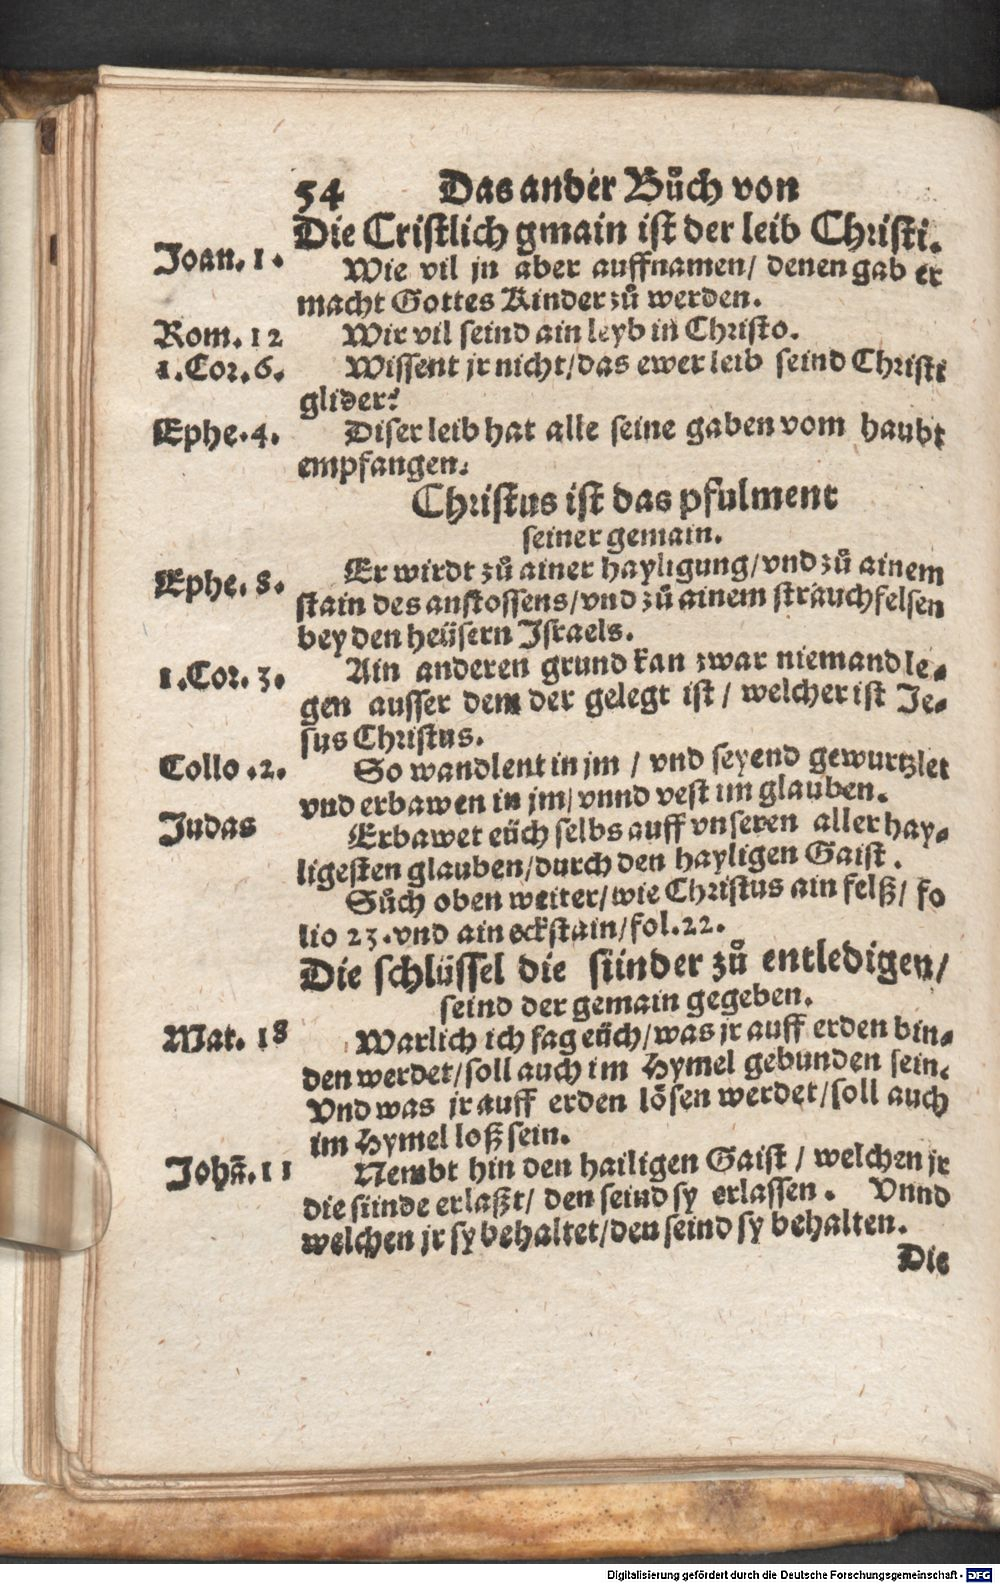 54 Das ander Bůch von
Die Cristlich gmain ist der leib Christi.
Joan. 1. Wie vil jn aber auffnamen/ denen gab er
macht Gottes Kinder zů werden.
Rom. 12 Wir vil seind ain leyb in Christo.
1. Cor. 6. Wissent jr nicht/das ewer leib seind Christi
glider?
Ephe. 4. Diser leib hat alle seine gaben vom haubt
empfangen.
Christus ist das pfulment
seiner gemain.
Ephe. 8. Er wirdt zů ainer hayligung/vnd zů ainem
stain des anstossens/vnd zů ainem strauchfelsen
bey den heüsern Israels.
1. Cor. 3. Ain anderen grund kan zwar niemand le-
gen ausser dem der gelegt ist / welcher ist Je-
sus Christus.
Collo .2. So wandlent in jm / vnd seyend gewurtzlet
vnd erbawen in jm/ vnnd vest im glauben.
Judas Erbawet eüch selbs auff vnseren aller hay-
ligesten glauben/durch den hayligen Gaist.
Sůch oben weiter/wie Christus ain felß/ fo
lio 23. vnd ain eckstain/fol. 22.
Die schlüssel die sünder zů entledigen/
seind der gemain gegeben.
Mat. 18 Warlich ich sag eüch/was jr auff erden bin-
den werdet/soll auch im Hymel gebunden sein.
Vnd was jr auff erden lösen werdet/soll auch
im Hymel loß sein.
Johã. 11 Nembt hin den hailigen Gaist / welchen jr
die sünde erlaßt/ den seind sy erlassen. Vnnd
welchen jr sy behaltet/den seind sy behalten.
Die
Digitalisierung gefördert durch die Deutsche Forschungsgemeinschaft - DFG